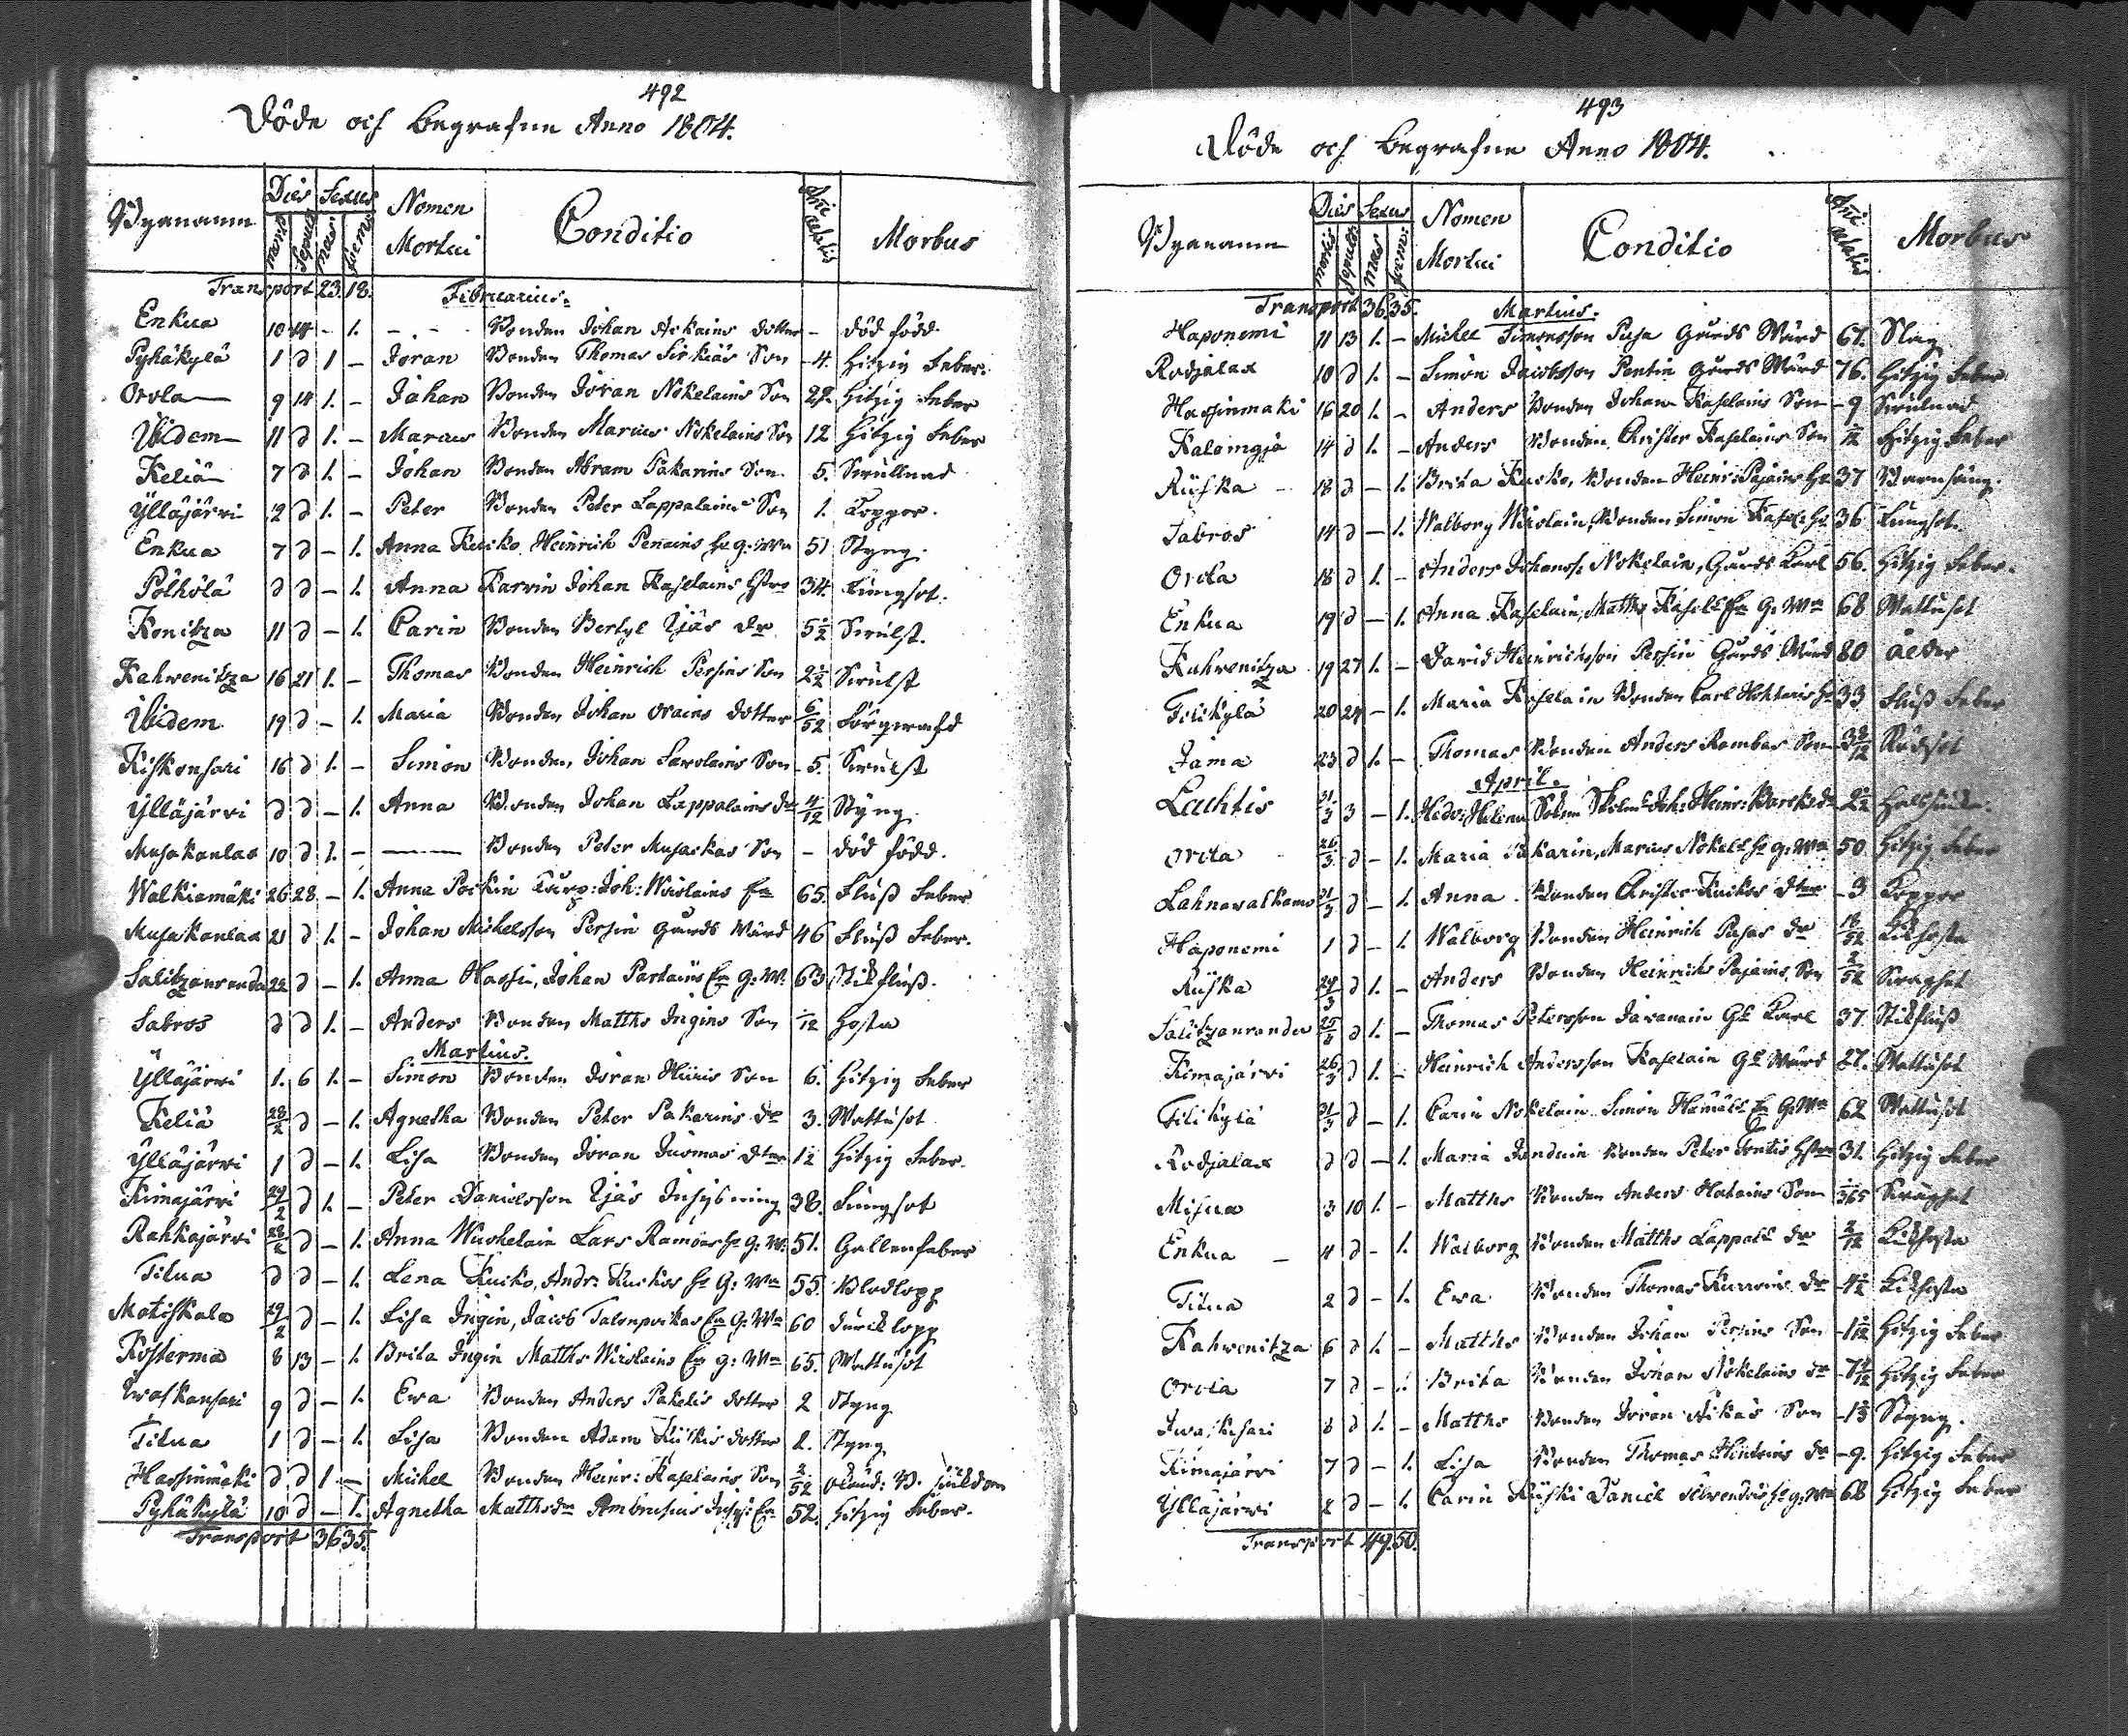 492
Döde och begrafne Anno 1804.
Bÿanamn Dies Sexus Nomen Mortui Conditio Ani aetatis Morbus
mortis Sepult mas foem
Transport 23. 18. Februarius.
Enkua 10 14 - 1. - - - Bonden Johan Ackains dotter - död född
Pyhäkylä 1 d 1 - Joran Bonden Thomas Sirkiäs Son - 4. hitzig feber.
Orola 9 14 1. - Johan Bonden Joran Nokelains Son 22. hitzig feber
Ibidem 11 d 1. - Marcus Bonden Marcus Nokelains Son 12 hitzig feber
Keliä 7 d 1. - Johan Bonden Abram Pakarins Son 5. Swullnad
Ylläjärvi 2 d 1. - Peter Bonden Peter Lappalains Son 1. Koppor.
Enkua 7 d - 1. Anna Kucko, Heinrich Penains hr g: Ma 51 Styng.
Pölhölä d d - 1. Anna Karvin Johan Kaselains hstro 34. Lungsot.
Konitza 11 d - 1. Carin Bonden Bertil Äjäs dr 5½ Swulst.
Kahwenitza 16 21 1. - Thomas Bonden Heinrich Persins Son 2½ Swulst
Ibidem 19 d - 1. Maria Bonden Johan Orains dotter 6/52 förqwafd
Kiskonsari 16 d 1. - Simon Bonden Johan Sawolains Son - 5. Swulst
Ylläjärvi d d - 1. Anna Bonden Johan Lappalains dr 4/12 Styng
Musakanlax 10 d 1. - — Bonden Peter Musackas Son - död född.
Walkiamäki 26 28. - 1. Anna Pockin Joh: Wäislains Ea 65. Fluß feber
Musakanlax 21 d 1. - Johan Mickelsson Persin gårds Wärd 46 Fluß feber.
Salitzanranda 22 d - 1. Anna Hassin, Johan Partains Ea g: M. 63. Stickfluß.
Sabros d d 1. - Anders Bonden Matths Ingins Son 1/12 hosta
Martius.
Ylläjärvi 1. 6 1. - Simon Bonden Joran Hiiris Son 6. hitzig feber
Keliä 28/2 d - 1. Agnetha Bonden Peter Pakarins dr 3. Wattusot
Ylläjärvi 1 d - 1. Lisa Bonden Joran Juomas dter 1½ hitzig feber.
Kimajärvi 29/2 d 1. - Peter Danielsson Äjäs Inhysning 38. Lungsot
Rahkajärvi 28/2 d - 1. Anna Wuokelain Lars Ramöns hr g: M. 51. Gallenfeber
Titua d d - 1. Lena Kucko, Andr: Kuckos hr G: Ma 55. Blodlopp
Matiskala 29/2 d - 1. Lisa Ingin, Jacob Talonpoikas Ea G: Ma 60 durcklopp
Kosterma 8 13 - 1. Brita Ingin Matths Wäislains Ea g: Ma 65. Wattusot
Iwaskansari 9 d - 1. Ewa Bonden Anders Pukelis dotter 2 Styng
Titua 1 d - 1. Lisa Bonden Adam Kiiskis dotter 2. Styng
Hassinmäki d d 1 - Michel Bonden Heinr: Kaselains Son 2/52
Pyhäkylä 10 d - 1. Agnetha Matthsdr Ambrusius Inhys: Ea 52. hitzig feber.
Transport 36 35.
493
Döde och begrafne Anno 1804.
Bÿanamn Dies Sexus Nomen Mortui Conditio Ani aetatis Morbus
mortis sepult: mas foem:
Transport 36. 35. Martius.
Haponemi 11 13 1. - Michel Simonsson Pusa Gårds Wärd 61. Slag
Rodjalax 10 d 1. - Simon Jacobsson Pentin gårds Wärd 76. hitzig feber
Hassinmaki 16 20 1. - Anders Bonden Johan Kaselains Son - 9 Swulnad
Kalamaja 14 d 1. - Anders Bonden Christer Kaselains Son /12 hitzig feber
Riiska - 18 d - 1. Brita Kucko, Bonden Heinr: Pajains hr 37 Barnsäng.
Sabros 14 d - 1. Walborg Wäislain, Bonden Simon Kasel: hr 36 Lungsot.
Orola 18 d 1. - Anders Johanss: Nokelain, Gårds Karl 56. hitzig feber.
Enkua 19 d - 1. Anna Kaselain, Matths Kasels Ea G: Ma 68 Wattusot
Kahwenitza 19 27 1. - David Heinrichsson Persin Gårds Wärd 80 ålder
Titikylä 20 24 - 1. Maria Kaselain Bonden Carl Hohtaris hr 33 Fluß feber
Jama 23 d 1. - Thomas Bonden Anders Rambas Son Rödsot
April.
Lachtis 31/3 3 - 1. Hedv: Helena Joh: Heinr: 2½ Halssjuka.
Orola 26/3 d - 1. Maria Pakarin, Marcus Nokels hr g: Ma 50 hitzig feber
Lahnavalkama 31/3 d - 1. Anna Bonden Christer Kuckos dter - 3 Koppor
Haponemi 1 d - 1. Walborg Bonden Heinrich Pusas dr 18/52 Kikhosta
Riiska 24/3 d 1. - Anders Bonden Heinrichs Pajains Son 2/52 Swaghet
Salitzanranda 25/3 d 1. - Thomas Petersson Javanain Gs Karl 37. Stickfluß
Kimajärvi 26/3 d 1. - Heinrich Andersson Kaselain Gs Wärd 27. Wattusot
Titikylä 31/3 d - 1. Carin Nokelain Simon Hämäls Ea G: Ma 62 Wattusot
Rodjalax d d - 1. Maria Janduin Bonden Peter Tontis hstro 31. hitzig feber
Misua 3 10 1. - Matths Bonden Anders Hatains Son /365 Swaghet
Enkua - 4 d - 1. Walborg Bonden Matths Lappals dr 2/12 Kikhosta
Titua 2 d - 1. Ewa Bonden Thomas Kurwins dr - 4½ Kikhosta
Kahwenitza 6 d 1. - Matths Bonden Johan Persins Son hitzig feber
Orola 7 d - 1. Brita Bonden Johan Nokelains dr hitzig feber
Iwaskisari 8 d 1. - Matths Bonden Joran Aikäs Son Styng.
Kimajärvi 7 d - 1. Lisa Bonden Thomas Hinkeins dr - 9. hitzig feber
Ylläjärvi 2 d - 1. Carin Kiiski Daniel Silvendois hr g: Ma 68 hitzig feber
Transport 49. 50.